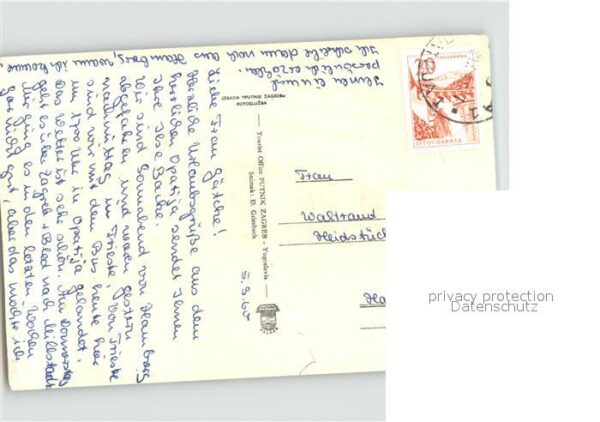 5.9.60
Liebe Frau Götche!
Herzliche Urlaubsgrüße aus dem
herrlichen Opatija sendet Ihnen
Ihre Ilse
Wir sind Sonnabend von Hamburg
abgefahren und waren gestern
nachmittag in Trieste. Von Trieste
sind wir mit dem Bus heute hier
um 1500 Uhr in Opatija gelandet.
Das Wetter ist sehr schön. Am Donnerstag
geht es über Zagreb + Bled nach Millstadt.
Mir ging es in den letzten Wochen
gar nicht gut, aber das möchte ich
Ihnen einmal
persönlich erzählen.
Ich schreibe dann noch aus Hamburg, wann ich komme
IZRADA "PUTNIK ZAGREB"
FOTOSLUŽBA
Tourist Office PUTNIK ZAGREB - Yugoslavia
Snimak: D. Griesbach
Frau
Waltraud
20
JUGOSLAVIJA
privacy protection
Datenschutz